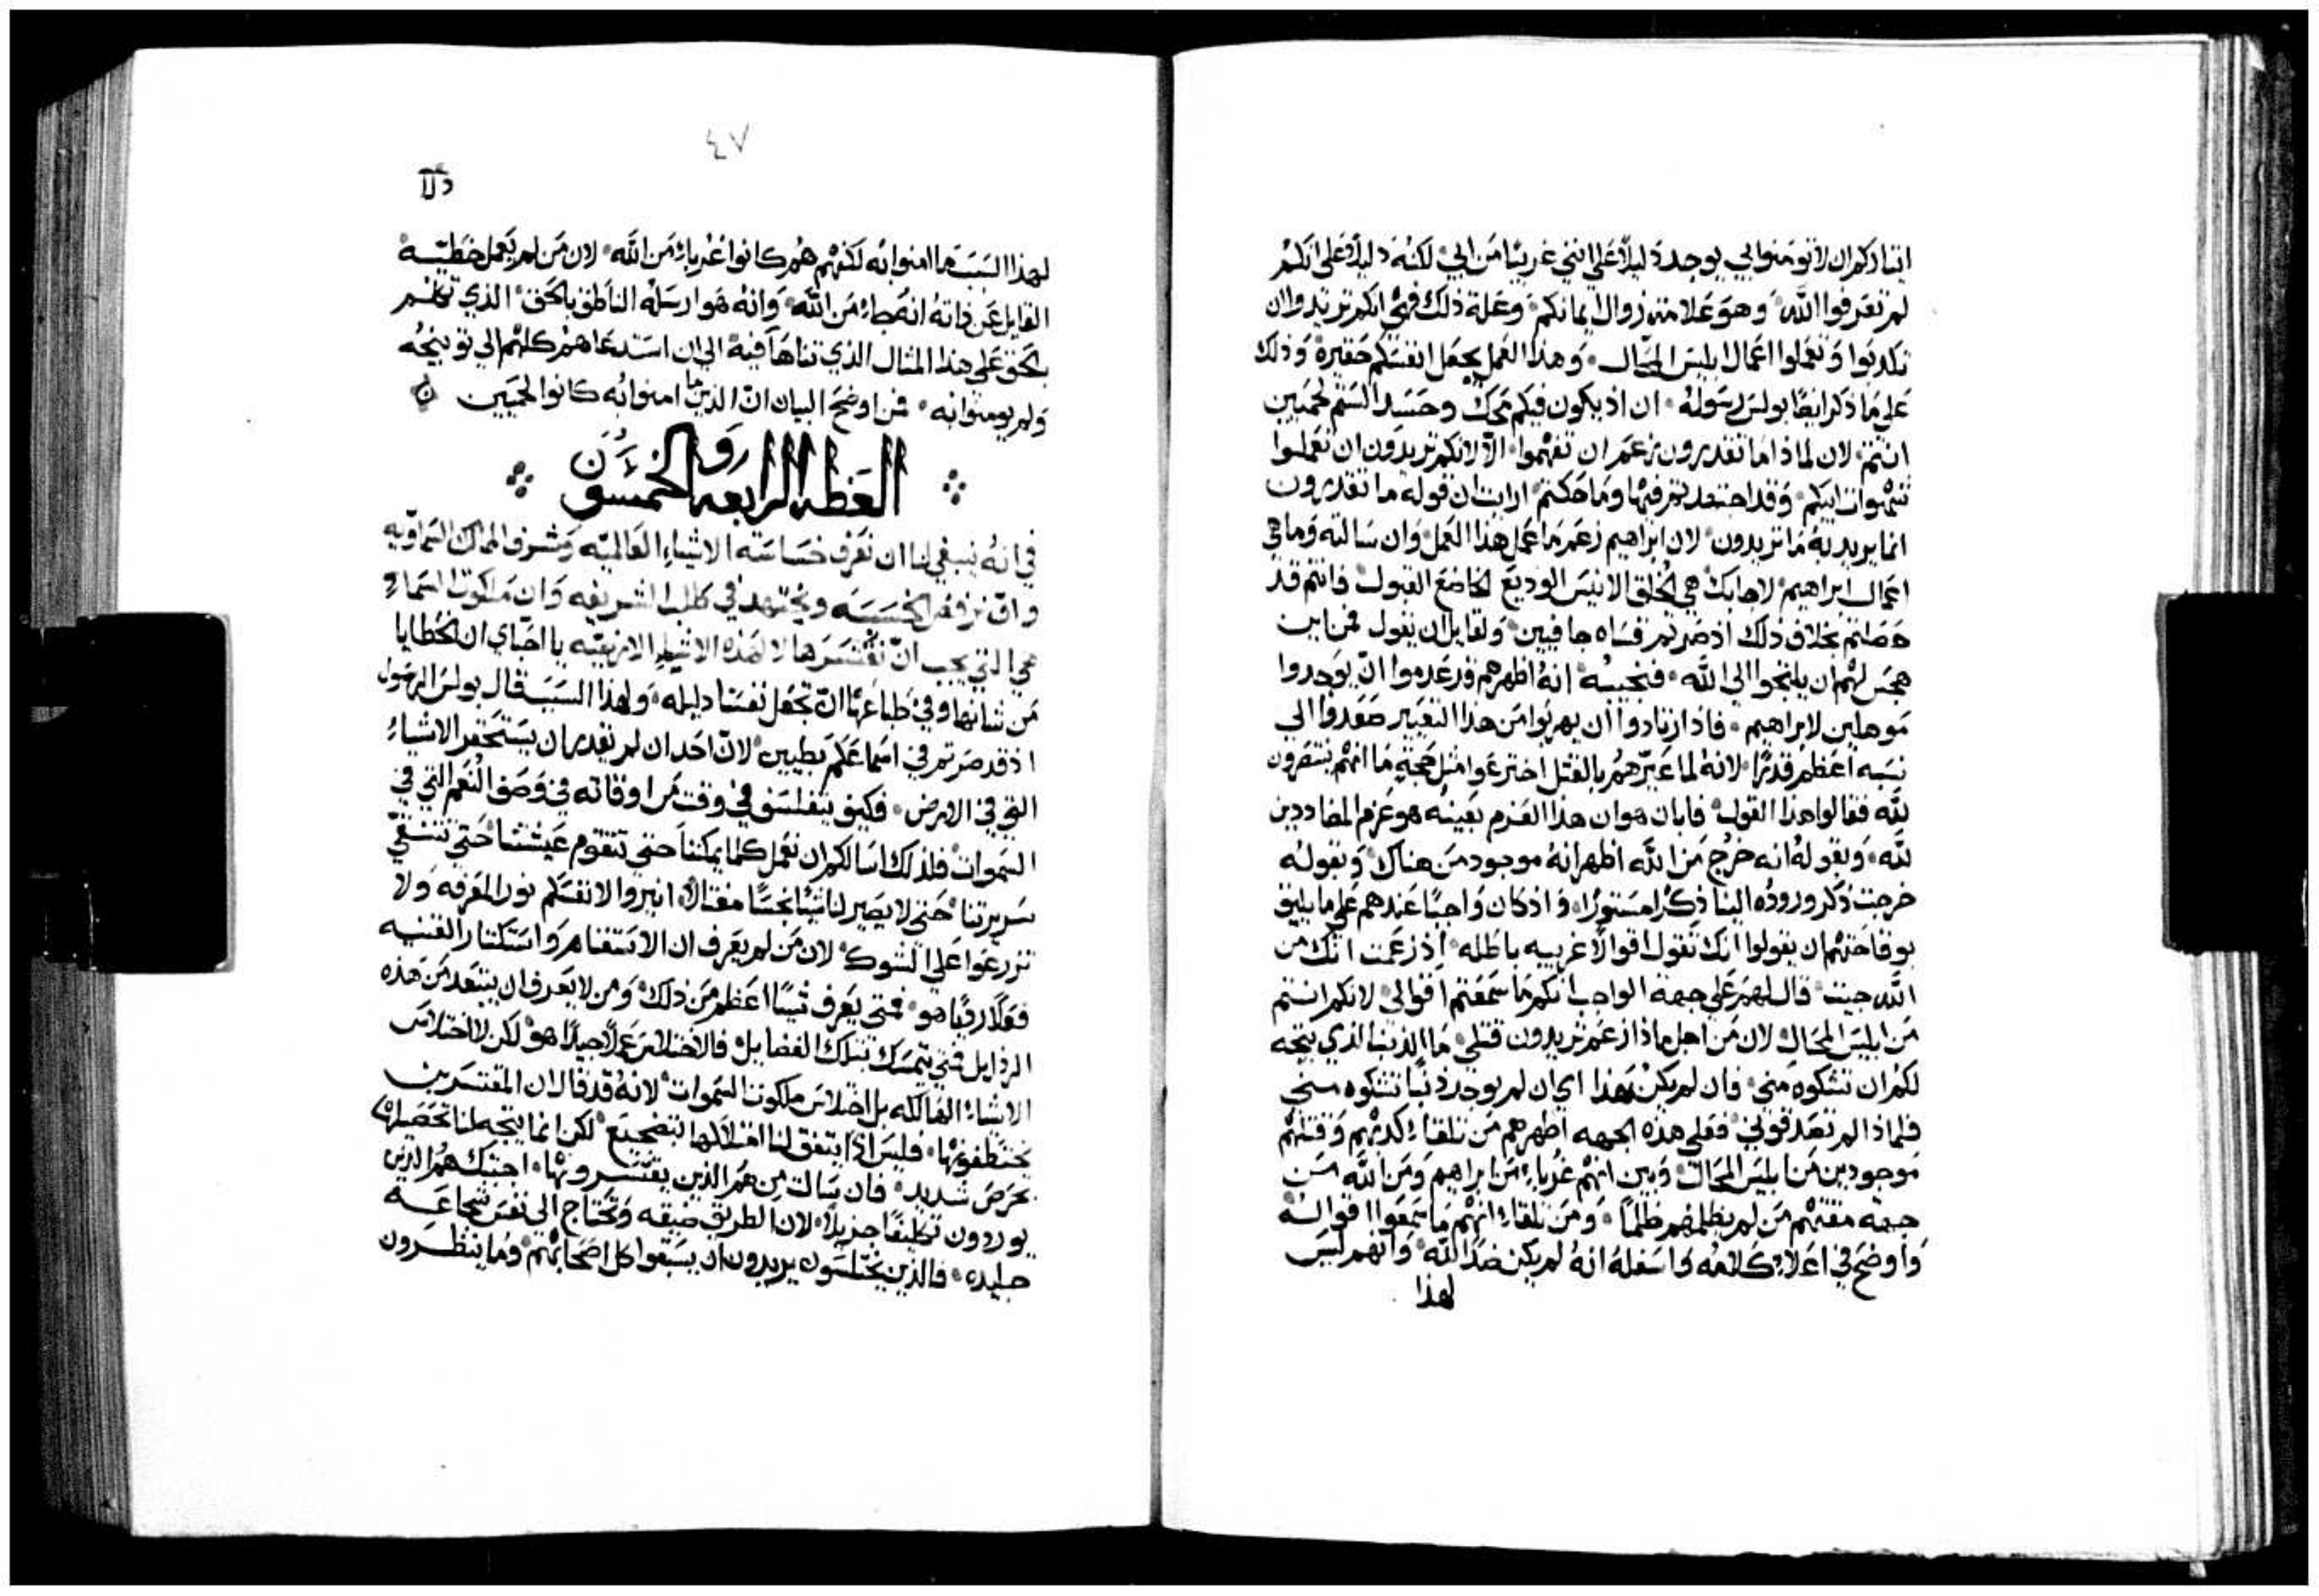 ايثاركم ان لا تومنوا بي يوجد دليلاً على انني غريبًا من ابي لكنه دليلاً على انكم
لم تعرفوا الله وهو علامة زوال ايمانكم وعلة ذلك فهي انكم تريدوا ان
تكذبوا وتعملوا اعمال ابليس المحال وهذا العمل يجعل انفسكم حقيرة وذلك
على ما ذكر ايضًا بولس رسوله ان اذ يكون فيكم محك وحسد الستم لحميين
انتم لان لماذا ما تقدرون زعم ان تفهموا الا لانكم تريدون ان تعملوا
شهوات ابيكم وقد اجتهد تعرفها وما حكتم ارايت ان قوله ما تقدرون
انما يريد به ما تريدون لان ابراهيم زعم ما عمل هذا العمل وان سالته وما هي
اعمال ابراهيم لاجابك هي الخلق الانيس الوديع الخاضع القبول فانتم قد
حصلتم بخلاف ذلك اذ صرتم قساه جافيين ولقايل ان يقول فمن اين
هجس لهم ان يلتجوا الى الله فنجيبه انه اظهرهم قد عدموا ان يوجدوا
موهلين لابراهيم فاذ ارتادوا ان يهربوا من هذا التعيير صعدوا الى
نسبه اعظم قدرًا لانه لما عيرهم بالقتل اخترعوا مثل حجة ما انهم ينتصرون
لله فقالوا هذا القول فابان هو ان هذا العزم بعينه هو عزم المضاددين
لله وبقوله انه خرج من الله اظهر انه موجود من هناك وبقوله
خرجت ذكر وروده الينا ذكرًا مستورًا واذ كان واجبًا عندهم على ما يليق
بوقاحتهم ان يقولوا انك تقول اقوالاً غريبه باطله اذ زعمت انك من
الله جيت قال لهم على جهة الواجب انكم ما سمعتم اقوالي لانكم انتم
من ابليس المحال لان من اجل ماذا زعم تريدون قتلي ما الذنب الذي يتجه
لكم ان تشكوه مني فان لم يكن هذا اي ان لم يوجد ذنبًا تشكوه مني
فلماذا لم تصدقوني فعلى هذه الجهه اظهرهم من تلقاء كذبهم وقتلهم
موجودين من ابليس المحال وبين انهم غرباء من ابراهيم ومن الله من
جهة مقتهم من لم يظلمهم ظلمًا ومن تلقاء انهم ما سمعوا اقواله
واوضح في اعلاء كلامه واسفله انه لم يكن ضد الله وانهم ليس
لهذا
٤٧
لهذا السبب ما امنوا به لكنهم هم كانوا غرباء من الله لان من لم يعمل خطية
القايل عن ذاته انه جاء من الله وانه هو ارسله الناطق بالحق الذي تكلم
بالحق على هذا المثال الذي تناها فيه الى ان استدعاهم كلهم الى توبيخه
ولم يومنوا به فمن اوضح البيان ان الذين ما امنوا به كانوا لحميين
العظه الرابعه والخمسون
في انه ينبغي لنا ان نعرف خساسة الاشياء العالميه وشرف الممالك السماويه
وان نرفض الخسيسه ونجتهد في طلب الشريفه وان ملكوت السماء
هي التي يجب ان نقتسرها لا لهذه الاشياء الارضيه يا احباي ان الخطايا
من شانها وفي طباعها ان تجعل نفسنا ذليله ولهذا السبب قال بولس الرسول
اذ قد صرتم في اسماعكم بطيين لان احد ان لم يقدر ان يستحقر الاشياء
التي في الارض فكيف يتفلسف في وقت من اوقاته في وصف النعم التي في
السموات فلذلك اسالكم ان نعمل كلما يمكننا حتى تتقوم عيشتنا حتى تتنقي
سريرتنا حتى لا يصير لنا شيًا نجسًا مغتالاً انيروا لانفسكم نور المعرفه ولا
تزرعوا على الشوك لان من لم يعرف ان الاستغنام واستكثار القنيه
فعلاً رديًا هو فمتى يعرف شيًا اعظم من ذلك ومن لا يعرف ان يبتعد من هذه
الرذايل فمتى يتمسك بتلك الفضايل فالاختلاس عملاً جيدًا هو لكن لا اختلاس
الاشياء الهالكه بل اختلاس ملكوت السموات لانه قد قال ان المقتسرين
يختطفونها فليس اذًا يتفق لنا امتلاكها بتضجيع لكن انما يتجه لنا تحصيلها
بحرص شديد فان سالت من هم الذين يقتسرونها اجبتك هم الذين
يوردون تكليفًا جزيلاً لان الطريق ضيقه وتحتاج الى نفس شجاعه
جليده فالذين يختلسون يريدون ان يسبقوا كل اصحابهم وما ينظرون